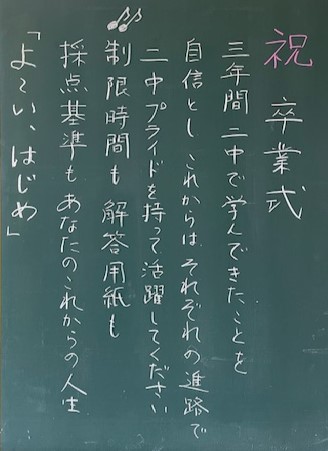 祝 卒業式
三年間 二中で学んできたことを
自信とし これからは それぞれの進路で
二中プライドを持って 活躍してください
制限時間も 解答用紙も
採点基準も あなたのこれからの人生
「よーい、はじめ」